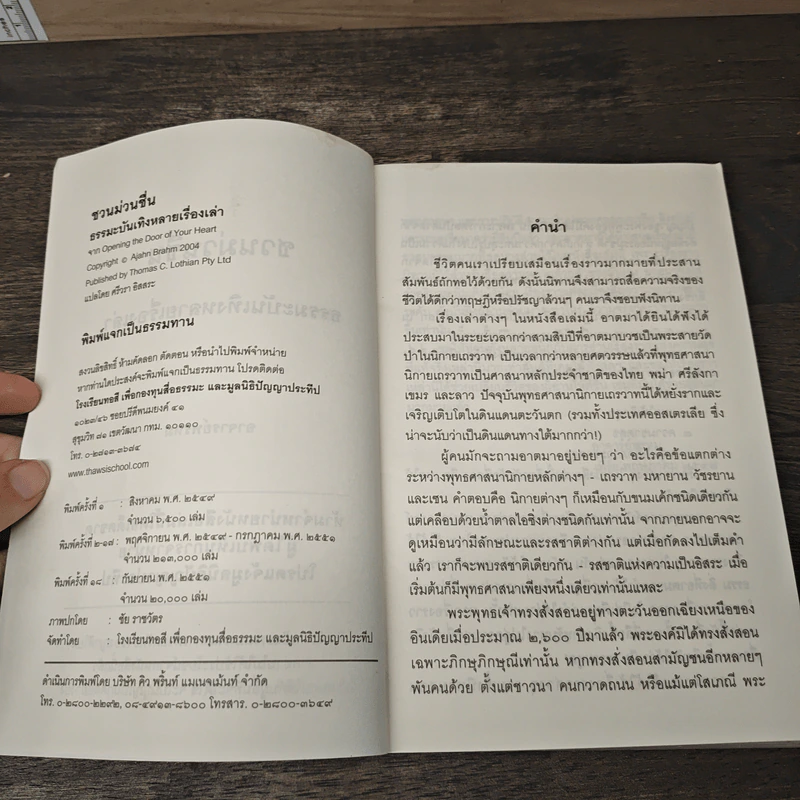 ชวนม่วนชื่น
ธรรมะบันเทิงหลายเรื่องเล่า
จาก Opening the Door of Your Heart
Copyright © Ajahn Brahm 2004
Published by Thomas C. Lothian Pty Ltd
แปลโดย ศรีวรา อิสสระ
พิมพ์แจกเป็นธรรมทาน
สงวนลิขสิทธิ์ ห้ามคัดลอก ตัดตอน หรือนำไปพิมพ์จำหน่าย
หากท่านใดประสงค์จะพิมพ์แจกเป็นธรรมทาน โปรดติดต่อ
โรงเรียนทอสี เพื่อกองทุนสื่อธรรมะ และมูลนิธิปัญญาประทีป
๑๐๒๓/๔๖ ซอยปรีดีพนมยงค์ ๔๑
สุขุมวิท ๗๑ เขตวัฒนา กทม. ๑๐๑๑๐
โทร. ๐-๒๗๑๓-๓๖๗๔
www.thawsischool.com
พิมพ์ครั้งที่ ๑ : สิงหาคม พ.ศ. ๒๕๔๙
จำนวน ๖,๕๐๐ เล่ม
พิมพ์ครั้งที่ ๒-๑๗ : พฤศจิกายน พ.ศ. ๒๕๔๙ - กรกฎาคม พ.ศ. ๒๕๕๑
จำนวน ๒๑๓,๐๐๐ เล่ม
พิมพ์ครั้งที่ ๑๘ : กันยายน พ.ศ. ๒๕๕๑
จำนวน ๒๐,๐๐๐ เล่ม
ภาพปกโดย : ชัย ราชวัตร
จัดทำโดย : โรงเรียนทอสี เพื่อกองทุนสื่อธรรมะ และมูลนิธิปัญญาประทีป
ดำเนินการพิมพ์โดย บริษัท คิว พริ้นท์ แมเนจเม้นท์ จำกัด
โทร. ๐-๒๘๐๐-๒๒๙๒, ๐๘-๔๙๑๓-๘๖๐๐ โทรสาร. ๐-๒๘๐๐-๓๖๔๙
คำนำ
ชีวิตคนเราเปรียบเสมือนเรื่องราวมากมายที่ประสาน
สัมพันธ์ถักทอไว้ด้วยกัน ดังนั้นนิทานจึงสามารถสื่อความจริงของ
ชีวิตได้ดีกว่าทฤษฎีหรือปรัชญาล้วนๆ คนเราจึงชอบฟังนิทาน
เรื่องเล่าต่างๆ ในหนังสือเล่มนี้ อาตมาได้ยินได้ฟังได้
ประสบมาในระยะเวลากว่าสามสิบปีที่อาตมาบวชเป็นพระสายวัด
ป่าในนิกายเถรวาท เป็นเวลากว่าหลายศตวรรษแล้วที่พุทธศาสนา
นิกายเถรวาทเป็นศาสนาหลักประจำชาติของไทย พม่า ศรีลังกา
เขมร และลาว ปัจจุบันพุทธศาสนานิกายเถรวาทนี้ได้หยั่งรากและ
เจริญเติบโตในดินแดนตะวันตก (รวมทั้งประเทศออสเตรเลีย ซึ่ง
น่าจะนับว่าเป็นดินแดนทางใต้มากกว่า!)
ผู้คนมักจะถามอาตมาอยู่บ่อยๆ ว่า อะไรคือข้อแตกต่าง
ระหว่างพุทธศาสนานิกายหลักต่างๆ - เถรวาท มหายาน วัชรยาน
และเซน คำตอบคือ นิกายต่างๆ ก็เหมือนกับขนมเค้กชนิดเดียวกัน
แต่เคลือบด้วยน้ำตาลไอซิ่งต่างชนิดกันเท่านั้น จากภายนอกอาจจะ
ดูเหมือนว่ามีลักษณะและรสชาติต่างกัน แต่เมื่อกัดลงไปเต็มคำ
แล้ว เราก็จะพบรสชาติเดียวกัน - รสชาติแห่งความเป็นอิสระ เมื่อ
เริ่มต้นก็มีพุทธศาสนาเพียงหนึ่งเดียวเท่านั้นแหละ
พระพุทธเจ้าทรงสั่งสอนอยู่ทางตะวันออกเฉียงเหนือของ
อินเดียเมื่อประมาณ ๒,๖๐๐ ปีมาแล้ว พระองค์มิได้ทรงสั่งสอน
เฉพาะภิกษุภิกษุณีเท่านั้น หากทรงสั่งสอนสามัญชนอีกหลายๆ
พันคนด้วย ตั้งแต่ชาวนา คนกวาดถนน หรือแม้แต่โสเภณี พระ